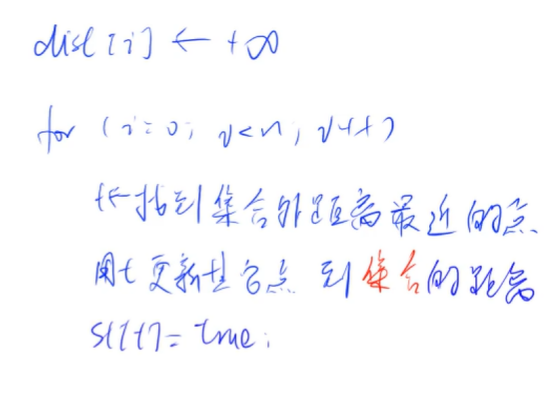 dist[i] ← +∞
for (i=0; i<n; i++)
t←找到集合外距离最近的点
用t更新其它点到集合的距离
st[t]=true;